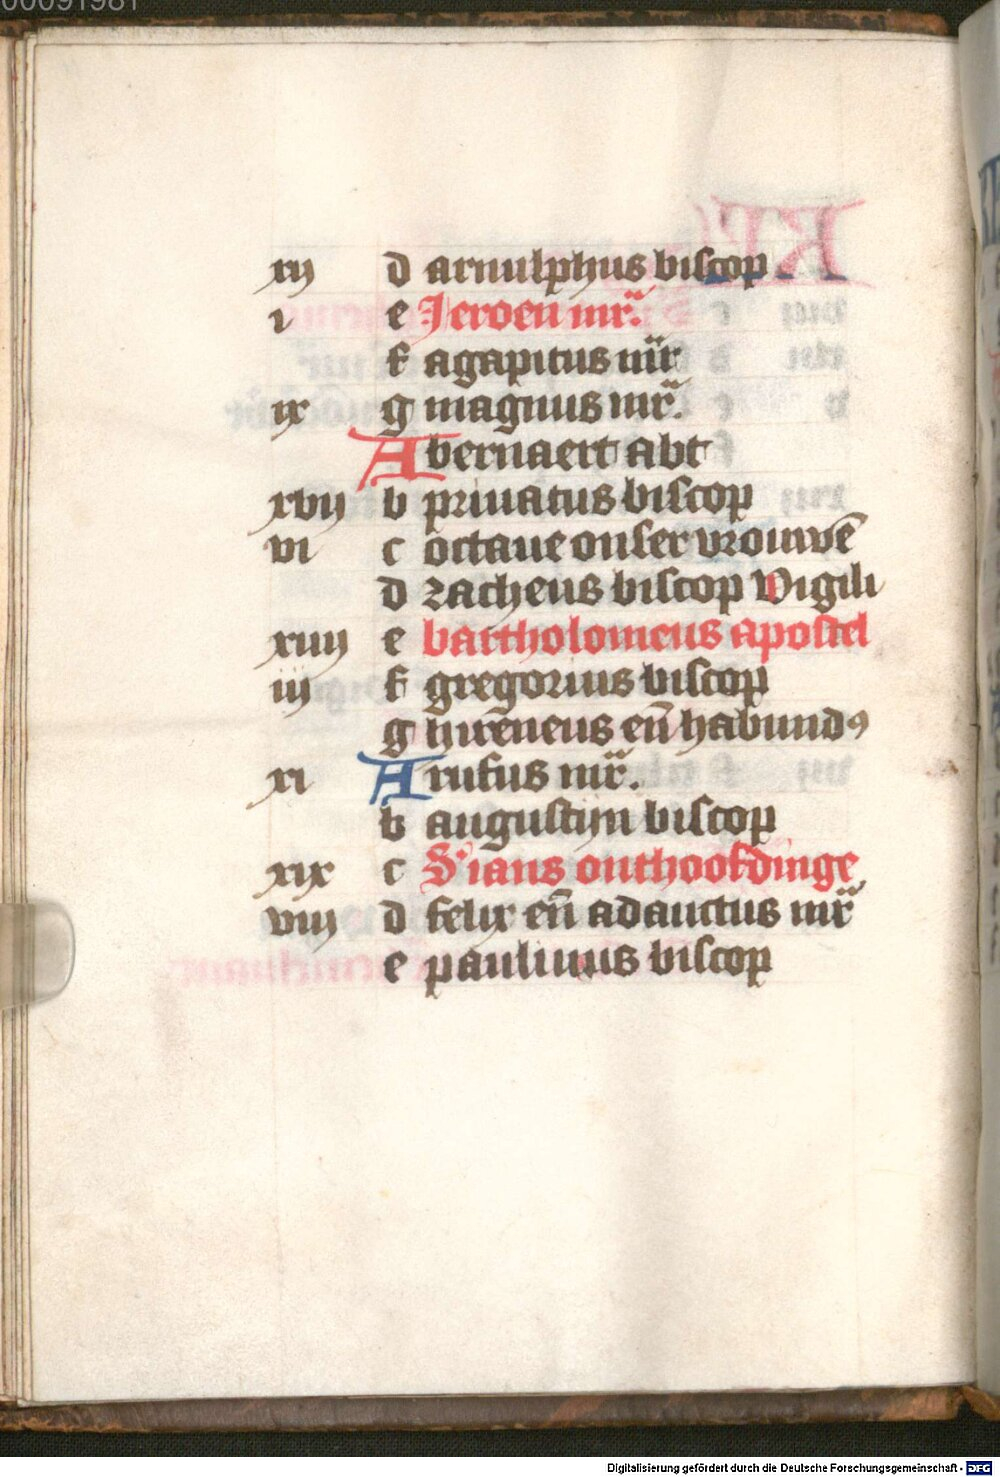 00091981
xij d arnulphus biscop
i e Jeroen mr̃.
f agapitus mr̃
ix g magnus mr̃.
A bernaert abt
xvij b priuatus biscop
vi c octaue onser vrouwẽ
d zacheus biscop Vigili
xiiij e bartholomeus apostel
iij f gregorius biscop
g hirẽneus eñ habundꝰ
xi A rufus mr̃.
b augustijn biscop
xix c S' ians onthoofdinge
viij d felix eñ adauctus mr̃
e paulinus biscop
Digitalisierung gefördert durch die Deutsche Forschungsgemeinschaft - DFG